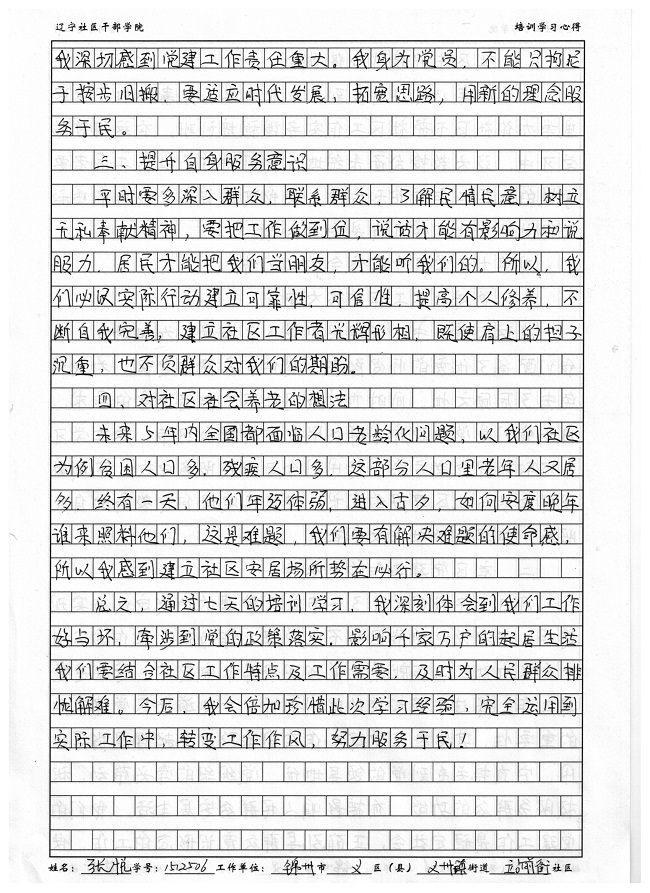 辽宁社区干部学院 培训学习心得
我深切感到党建工作责任重大。我身为党员，不能只拘泥
于按步旧搬，要适应时代发展，拓宽思路，用新的理念服
务于民。
三、提升自身服务意识
平时要多深入群众，联系群众，了解民情民意，树立
无私奉献精神，要把工作做到位，说话才能有影响力和说
服力，居民才能把我们当朋友，才能听我们的。所以，我
们必以实际行动建立可靠性，可信性，提高个人修养，不
断自我完善，建立社区工作者光辉形相，既使肩上的担子
沉重，也不负群众对我们的期盼。
四、对社区社会养老的想法
未来5年内全国都面临人口老龄化问题，以我们社区
为例贫困人口多，残疾人口多，这部分人口里老年人又居
多，终有一天，他们年迈体弱，进入古夕，如何安度晚年
谁来照料他们，这是难题，我们要有解决难题的使命感，
所以我感到建立社区安居场所势在必行。
总之，通过七天的培训学习，我深刻体会到我们工作
好与坏，牵涉到党的政策落实，影响千家万户的起居生活
我们要结合社区工作特点及工作需要，及时为人民群众排
忧解难。今后，我会倍加珍惜此次学习经验，完全运用到
实际工作中，转变工作作风，努力服务于民！
姓名：张悦 学号：1512506 工作单位：锦州市 义 区（县） 义州镇街道 社区